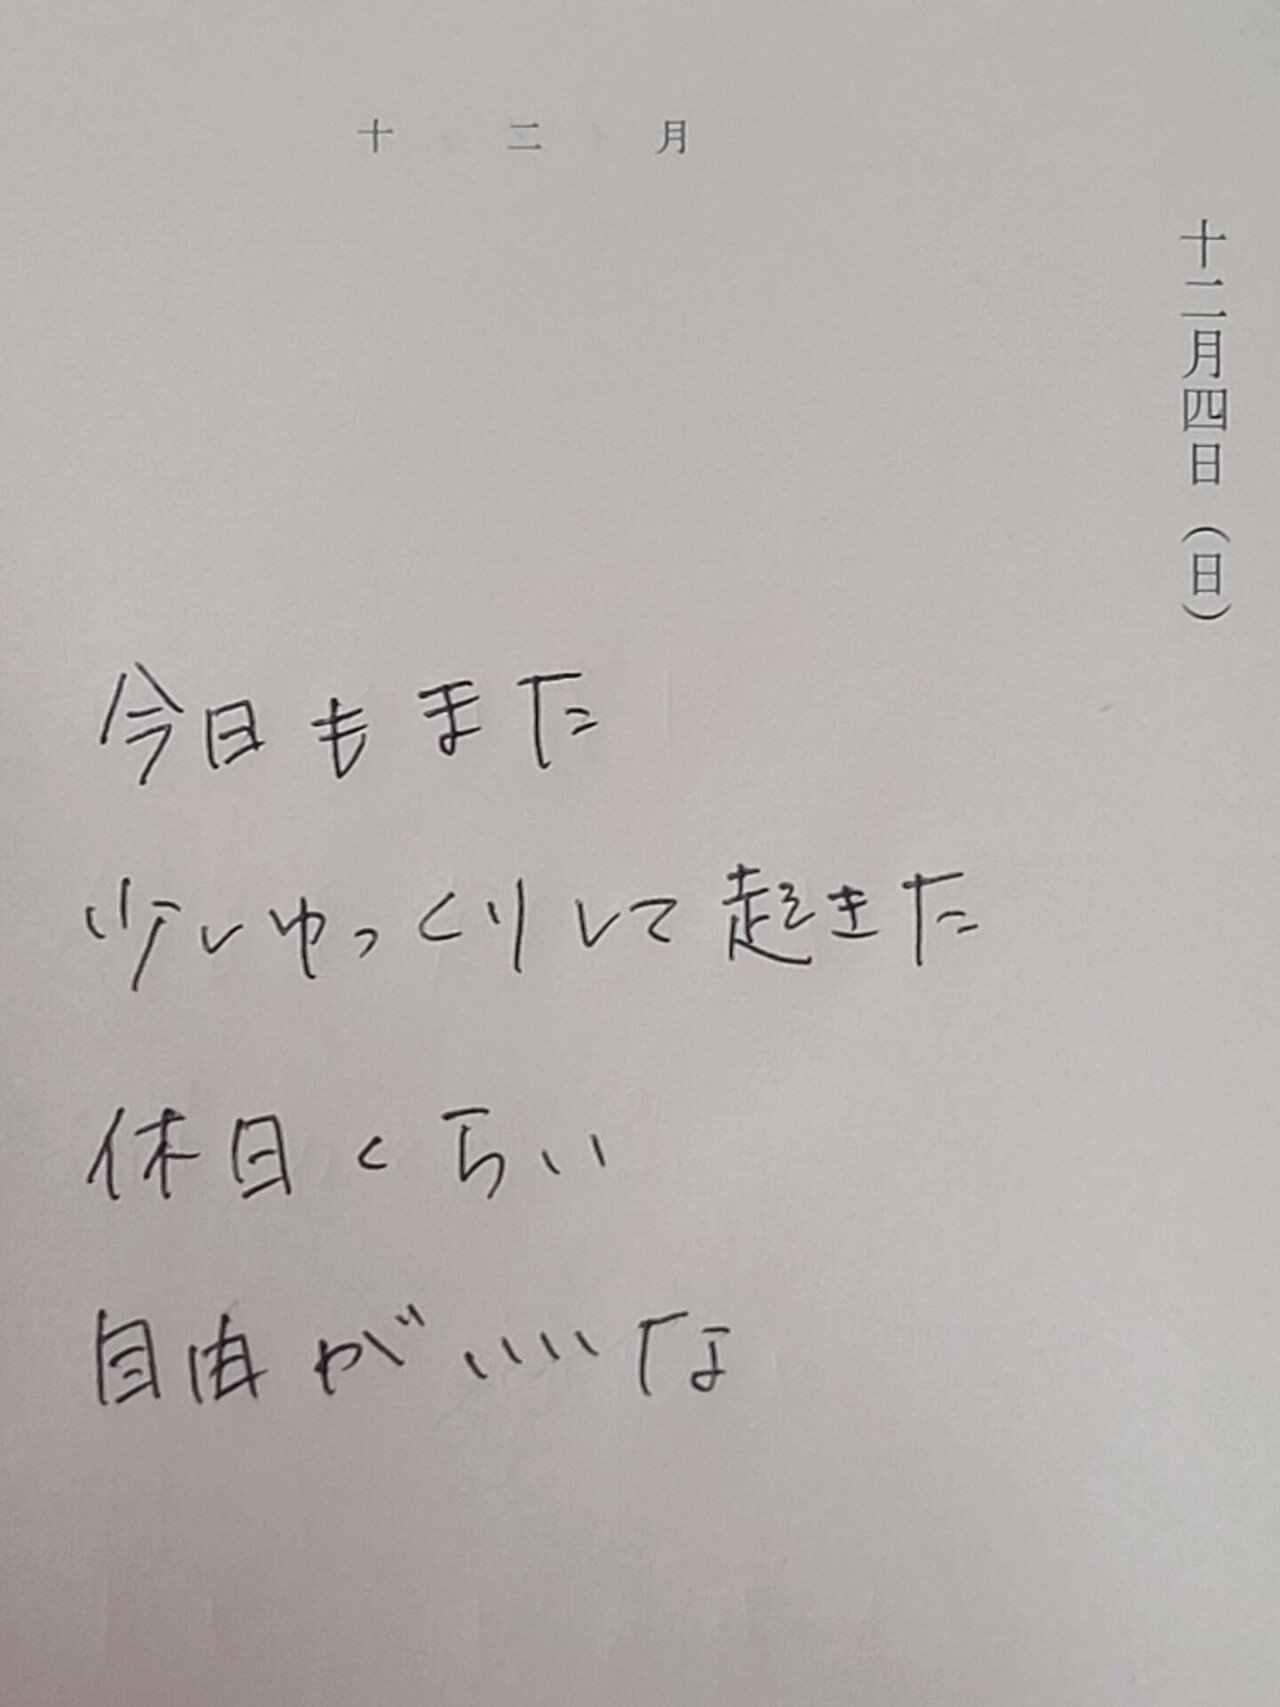 十二月
十二月四日（日）
今日もまた
少しゆっくりして起きた
休日くらい
自由がいいな